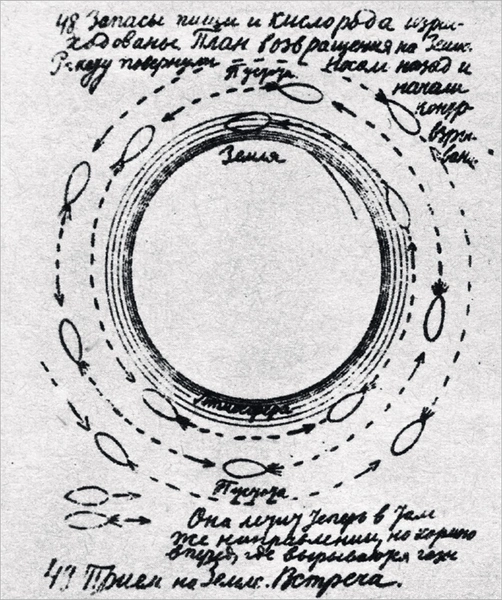 48 Запасы пищи и кислорода израс-
ходованы. План возвращения на Земл.
Ракету повернули Носом назад и
Пустота.
начали
контр-
взры-
ван.
Земля
Атмосфера
Пустота.
Она летит теперь в том
же направлении, но кормою
вперед, где вырываются газы
Прием на Земле. Встреча.